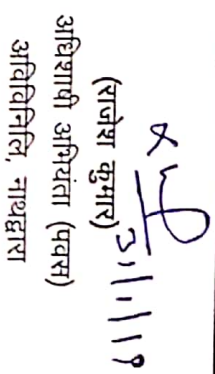 (राजेश कुमार)
अधिशाषी अभियंता (पवस)
अविविनिलि, नाथद्वारा